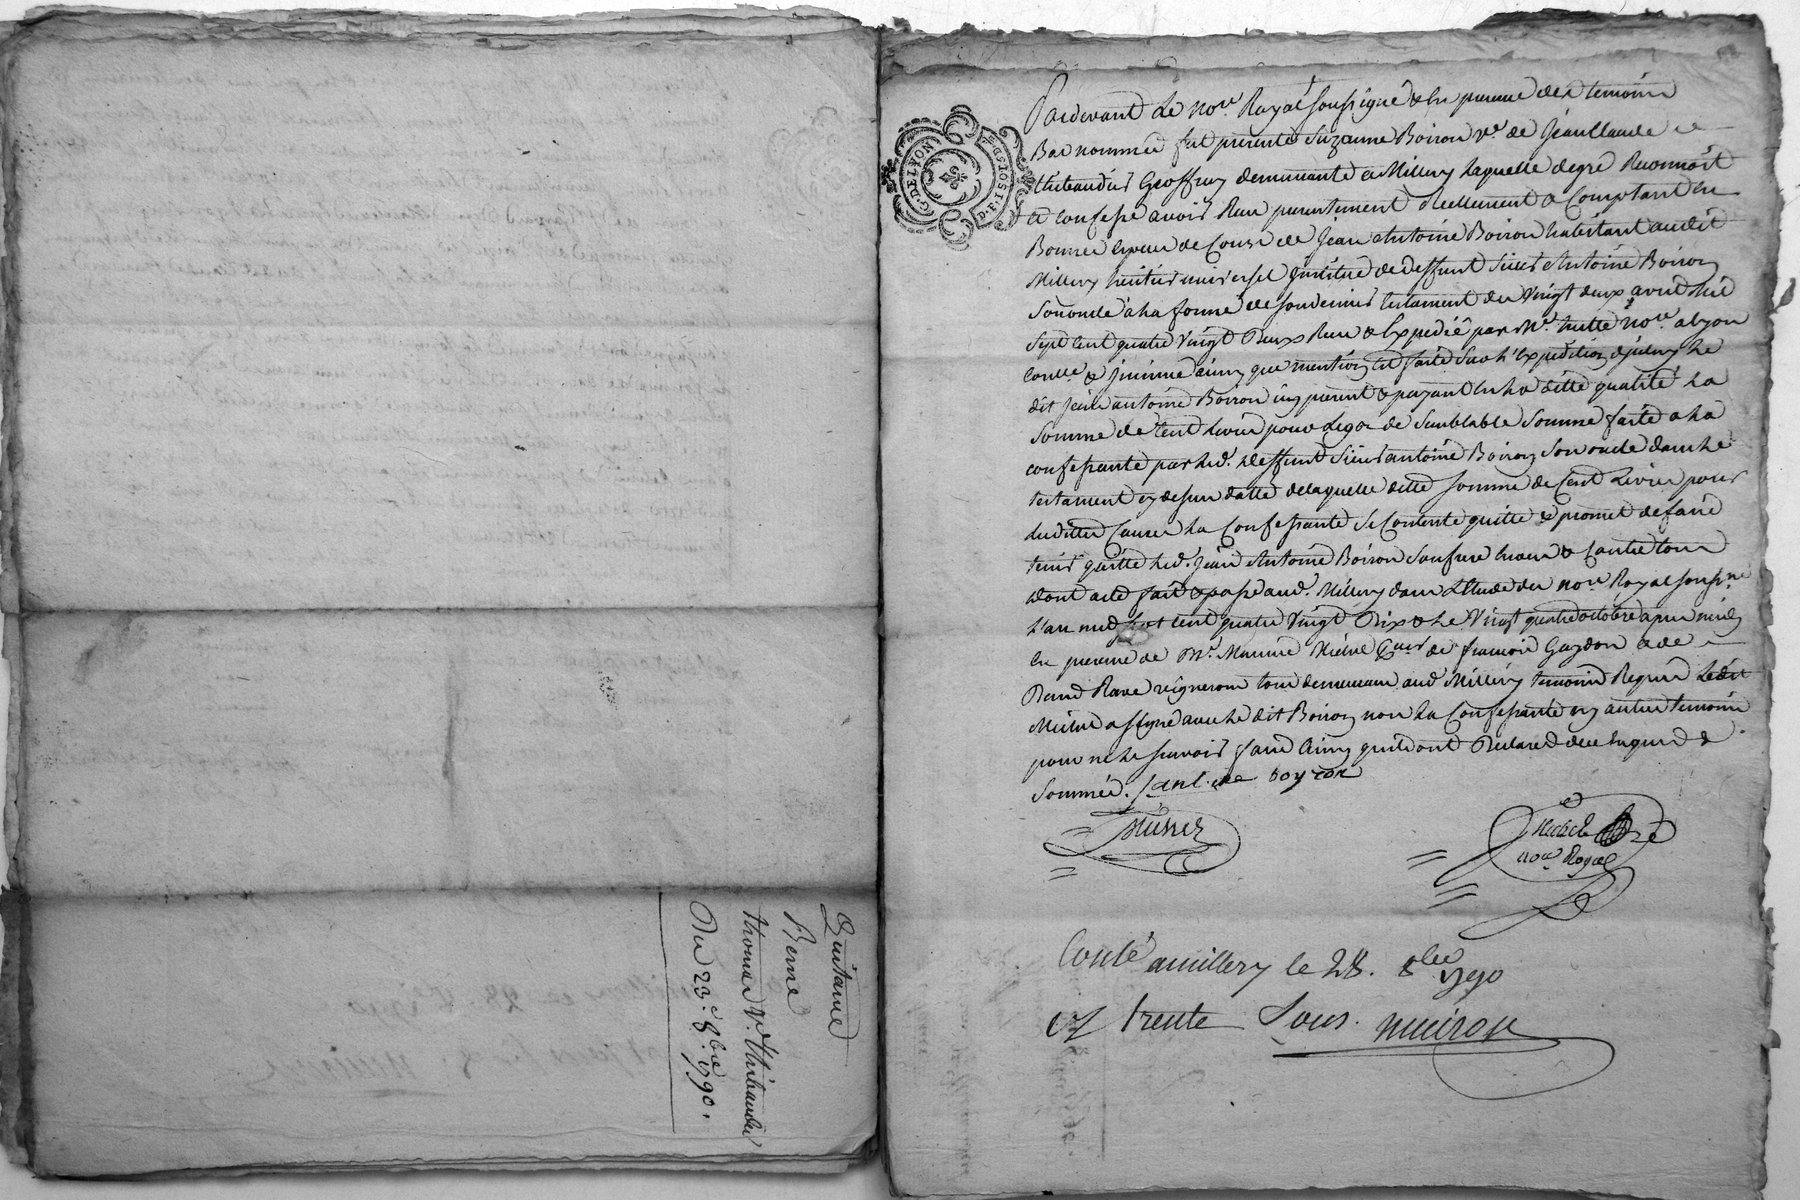 Quittance
Berne
thomas Vᵉ. thibaudier
Du 23ᵉ. 8bre 1790.
G. DE LYON
D. F. 1 SOL 8 DS
Pardevant Le Noʳᵉ Royal soussigné & En presence des temoins
Bas nommés fut presente Suzanne Boiron vᵉ de Jean Claude
thibaudier Geoffray demeurante a Millery Laquelle de gré Reconnoit
et confesse avoir Reçu presentement Reellement & Comptant En
Bonnes Especes de Cours de Jean Antoine Boiron habitant audit
Millery heritier universel institué de deffunt Sieur Antoine Boiron
son oncle a la forme de son dernier testament du Vingt deux avril Mil
Sept cent quatre Vingt Deux Reçu & Expedié par Mᵉ. hutte Noʳᵉ. a Lyon
Conᵗˡᵉ. & insinué ainsy que mention Est faite Sur L'Expedition d'jceluy Le
dit Jean antoine Boiron icy present & payant En La ditte qualité La
Somme de Cent Livres pour Legs de Semblable Somme faite a La
confessante par Led. deffunt Sieur antoine Boiron Son oncle dans Le
testament cy dessus datté de Laquelle ditte Somme de Cent Livres pour
Lesdittes Causes La Confessante Se Contente quitte & promet de faire
tenir quitte Led. Jean Antoine Boiron Son frere Envers & Contre tous
Dont acte fait & passé aud. Millery dans L'Etude du Noʳᵉ Royal soussⁿᵉ
L'an mil sept cent quatre Vingt Dix & Le Vingt quatre octobre apres midy
En presence de Mʳ. de françois Gaydon & de
Rave vignerons tous demeurans aud Millery temoins Requis Ledit
a signé avec Le dit Boiron non La Confessante ny autres temoins
pour ne Le Sçavoir faire Ainsy qu'ils ont Declaré de ce Enquis &
Sommés. J ant. ne boyron
noʳᵉ Royal
Conlé a millery le 28. 8bre 1790
trente Sous.